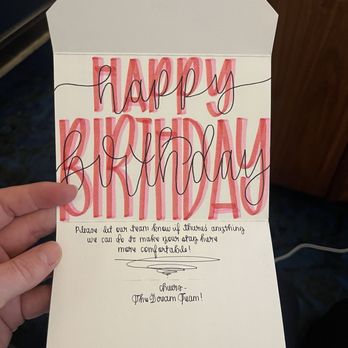 HAPPY
happy
BIRTHDAY
birthday
Please let our team know if theres anything
we can do to make your stay here
more comfortable!
cheers-
The Dream Team!